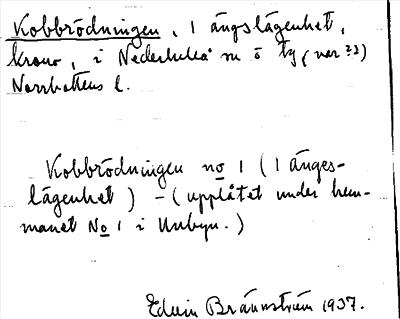 Kobbrödningen, 1 ängslägenhet,
krono, i Nederluleå sn o ty (var ??)
Norrbottens l.
Kobbrödningen no 1 (1 änges-
lägenhet) - (upplåtet under hem-
manet No 1 i Unbyn.)
Edvin Brännström 1937.